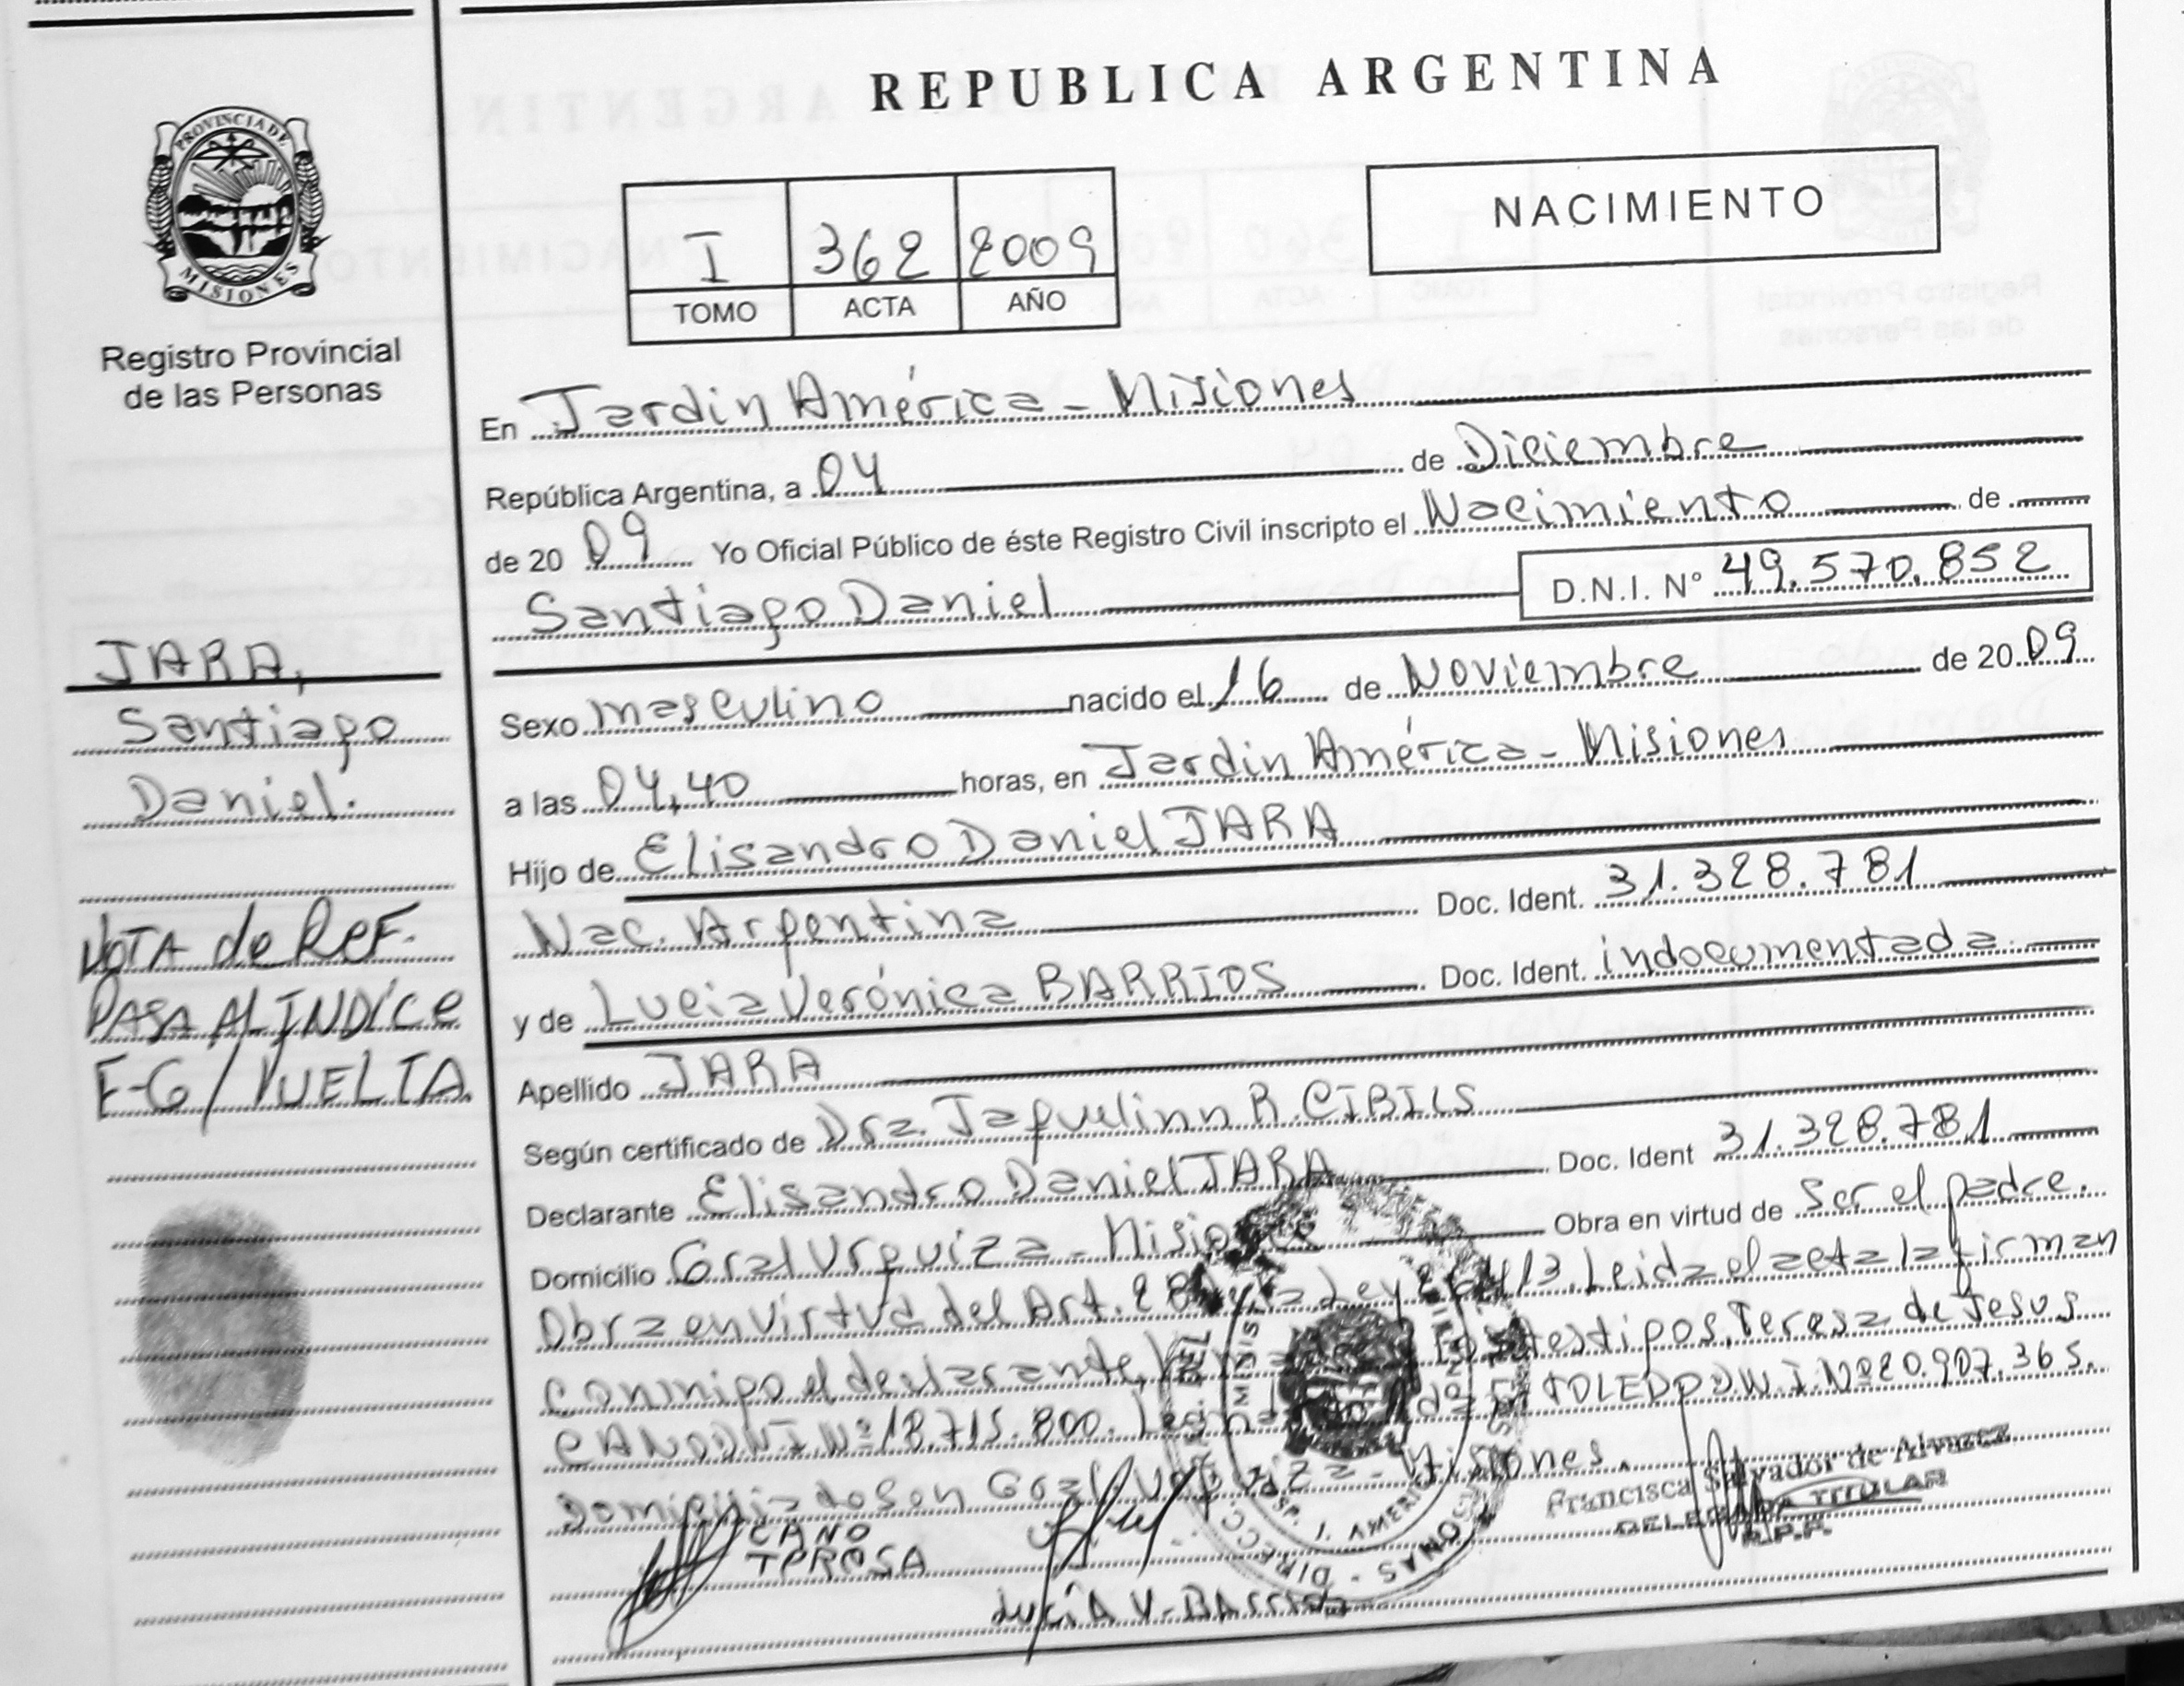 REPUBLICA ARGENTINA
PROVINCIA DE
MISIONES
Registro Provincial
de las Personas
I 362 2009
TOMO ACTA AÑO
NACIMIENTO
En Jardin América - Misiones
República Argentina, a 04 de Diciembre
de 20 09 Yo Oficial Público de éste Registro Civil inscripto el Nacimiento de
Santiago Daniel D.N.I. N° 49.570.852
Sexo masculino nacido el 16 de Noviembre de 20 09
a las 04,40 horas, en Jardin América - Misiones
Hijo de Elisandro Daniel JARA
Nac. Argentina Doc. Ident. 31.328.781
y de Lucia Verónica BARRIOS Doc. Ident. indocumentada
Apellido JARA
Según certificado de Dra. Jaquelinn R. CIBILS
Declarante Elisandro Daniel JARA Doc. Ident 31.328.781
Domicilio Gral Urquiza - Misiones Obra en virtud de Ser el padre.
Obra en virtud del Art. 28 Ley 26413. Leida el acta la firman
conmigo el declarante, los testigos, Teresa de Jesus
CANO DNI Nº 18.715.800. TOLEDO D.N.I. Nº 20.907.365.
domiciliados en Gral. Urquiza - Misiones.
CANO
TEROSA
Lucía V. Barrios
Francisca Salvador de Alvarez
DELEGADA TITULAR
R.P.P.
JARA,
Santiago
Daniel.
NOTA de REF.
PASA AL INDICE
F-6/VUELTA